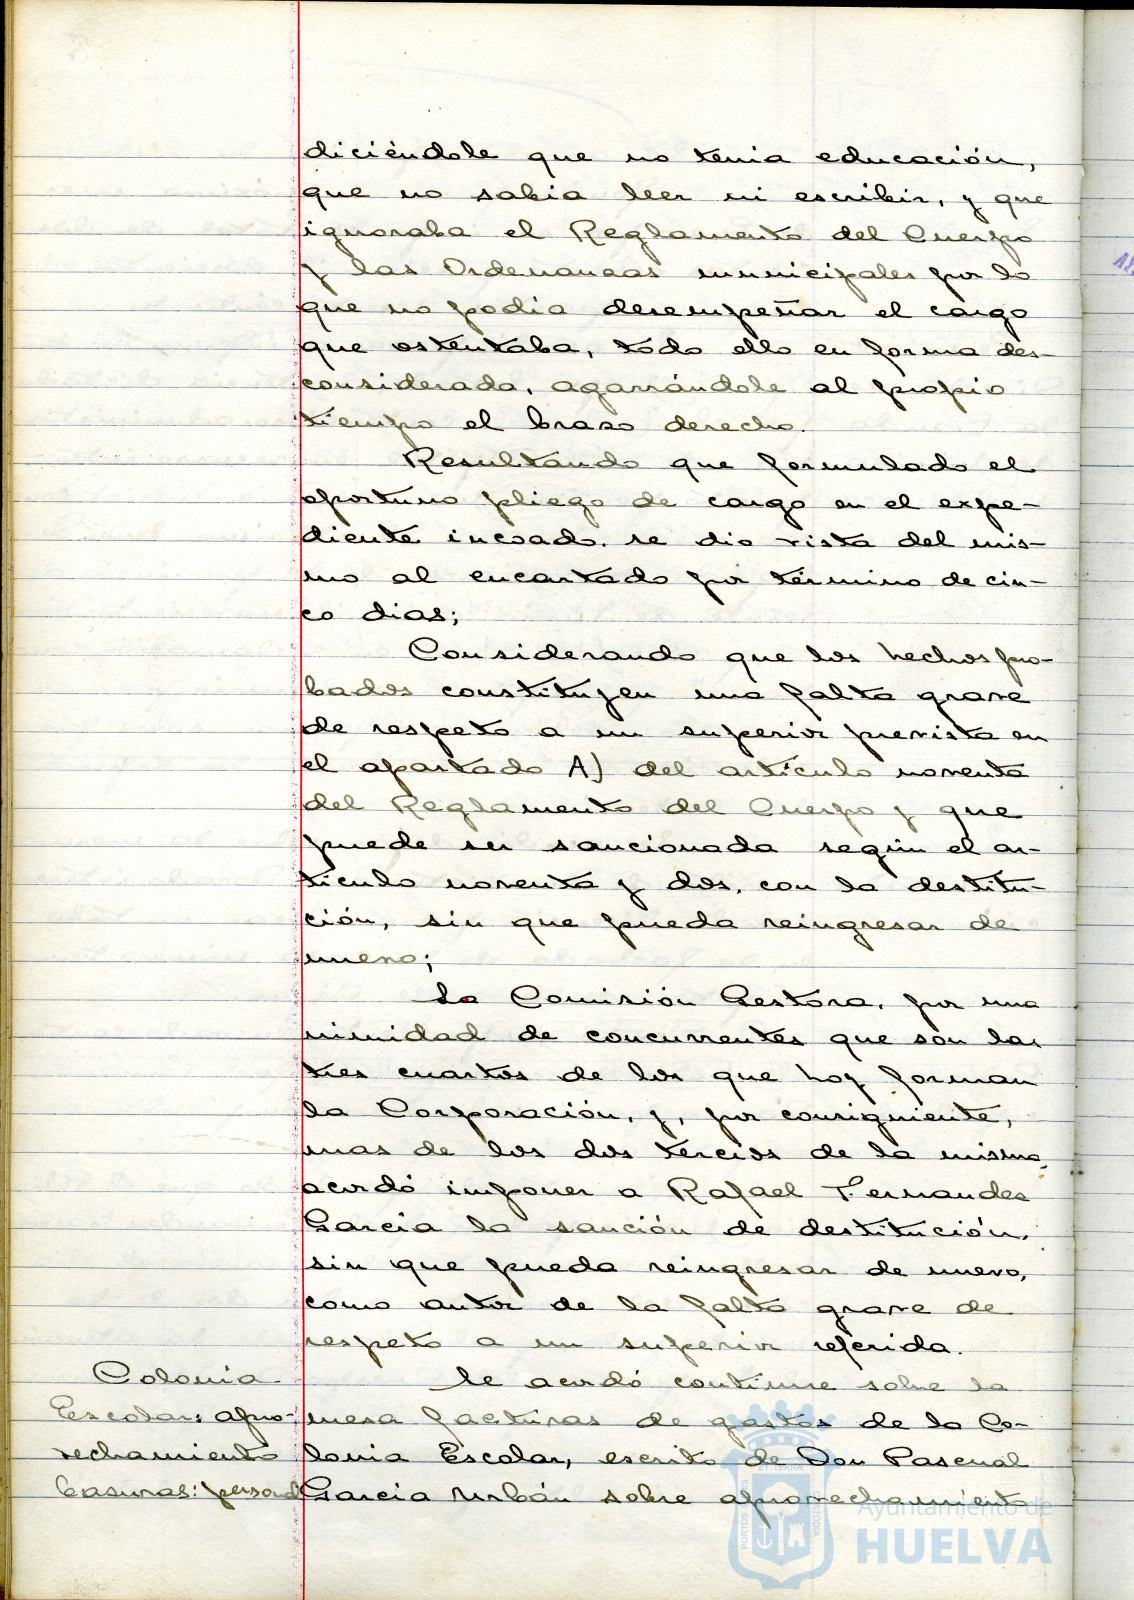 diciéndole que no tenia educación,
que no sabia leer ni escribir, y que
ignoraba el Reglamento del Cuerpo
y las Ordenanzas municipales por lo
que no podia desempeñar el cargo
que ostentaba, todo ello en forma des-
considerada, agarrándole al propio
tiempo el brazo derecho.
Resultando que formulado el
oportuno pliego de cargo en el expe-
diente incoado, se dio vista del mis-
mo al encartado por término de cin-
co dias;
Considerando que los hechos pro-
bados constituyen una falta grave
de respeto a un superior prevista en
el apartado A) del artículo noventa
del Reglamento del Cuerpo y que
puede ser sancionada según el ar-
tículo noventa y dos, con la destitu-
ción, sin que pueda reingresar de
nuevo;
La Comisión Gestora, por una
nimidad de concurrentes que son las
tres cuartos de los que hoy forman
la Corporación, y, por consiguiente,
mas de los dos tercios de la misma,
acordó imponer a Rafael Fernandes
Garcia la sanción de destitución,
sin que pueda reingresar de nuevo,
como autor de la falta grave de
respeto a un superior referida.
Colonia
Escolar: apro-
vechamiento
basuras: personal
Se acordó continue sobre la
mesa facturas de gastos de la Co-
lonia Escolar, escrito de Don Pascual
Garcia Urbán sobre aprovechamiento
Ayuntamiento de
HUELVA